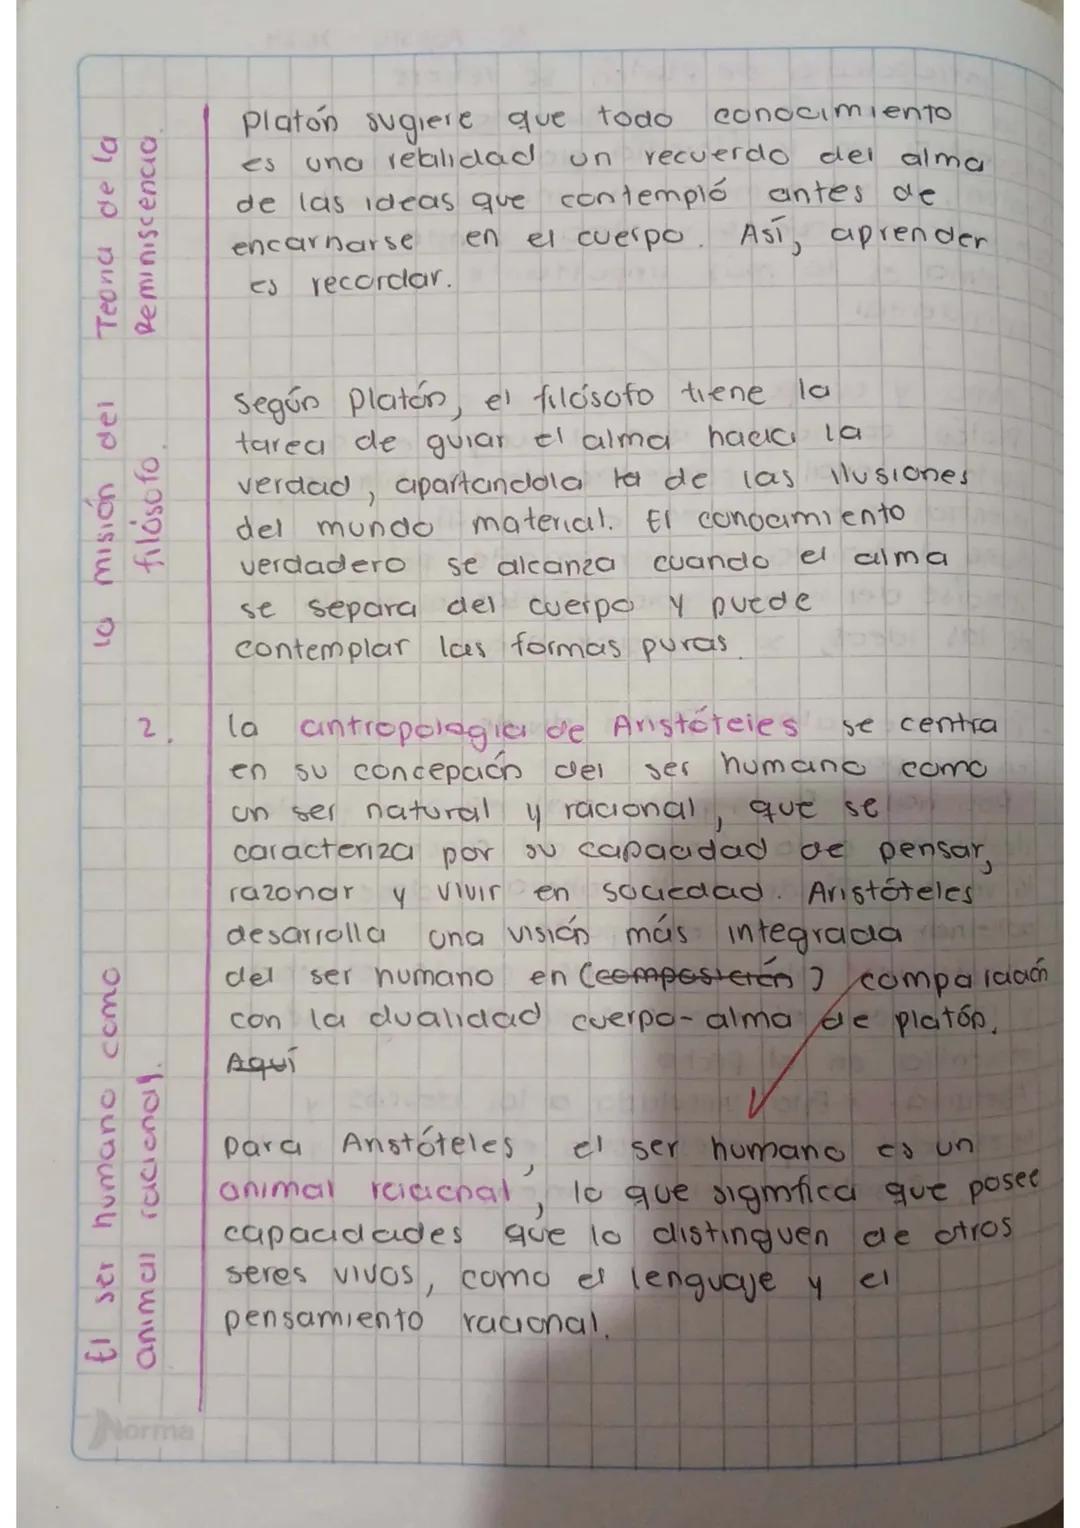 Teoría de la
Reminiscencia.
Platón sugiere que todo conocimiento
es una realidad un recuerdo del alma
de las ideas que contempló antes de
encarnarse en el cuerpo. Así, aprender
es recordar.
la misión del
filósofo.
Según Platón, el filósofo tiene la
tarea de guiar el alma hacia la
verdad, apartandola la de las ilusiones
del mundo material. El conocimiento
verdadero se alcanza cuando el alma
se separa del cuerpo y puede
contemplar las formas puras.
2.
la antropologia de Aristóteles se centra
en su concepción del ser humano como
un ser natural y racional, que se
caracteriza por su capacidad de pensar,
razonar y vivir en sociedad. Aristóteles
desarrolla una visión más integrada
del ser humano en (composición) comparación
con la dualidad cuerpo-alma de platón.
Aquí
El ser humano como
animal racional.
para Aristóteles, el ser humano es un
animal racional, lo que significa que posee
capacidades que lo distinguen de otros
seres vivos, como el lenguaje y el
pensamiento racional.
Norma